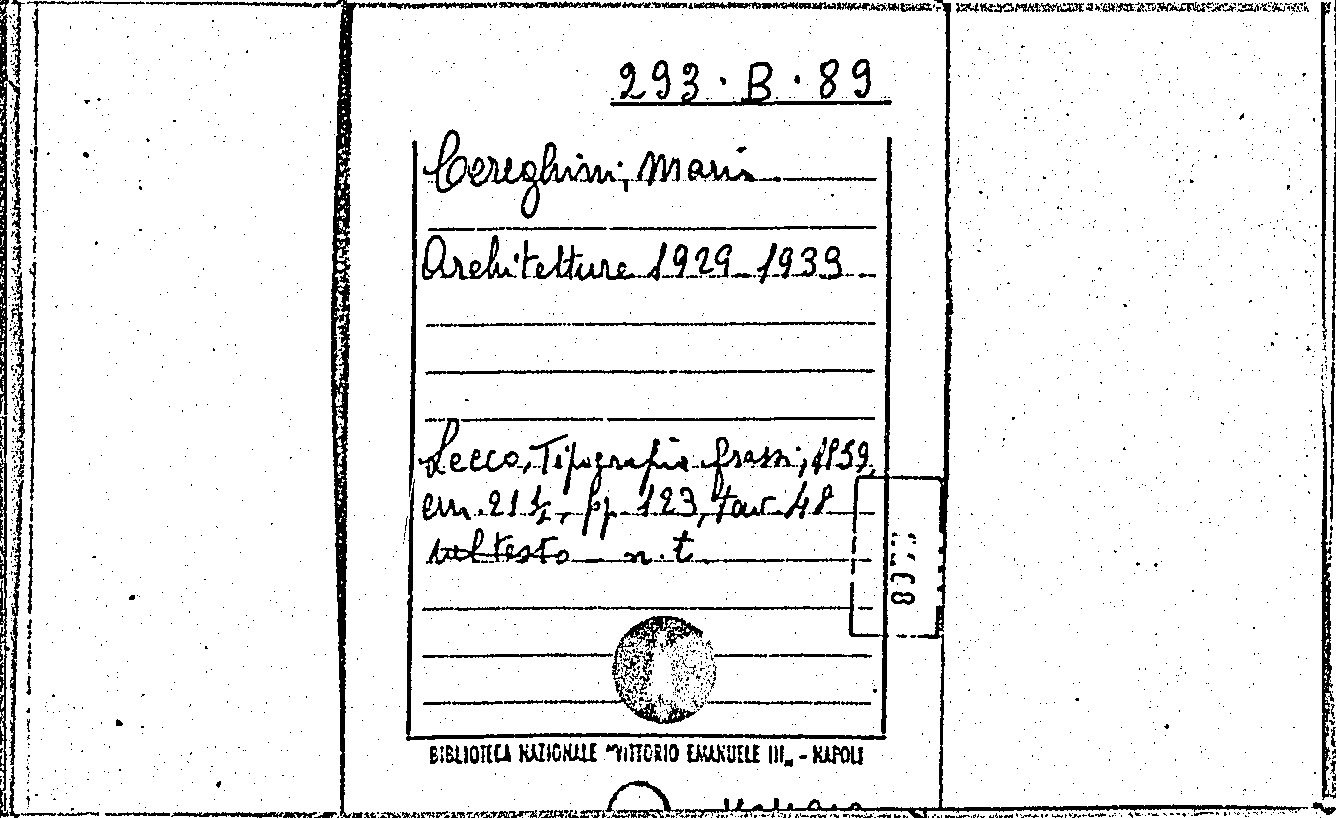 293·B·89
Cereghini, Mario
Architetture 1929-1939
Lecco, Tipografia Grassi, 1939,
cm. 21 ½, pp. 123, tav. 48
n. t.
BIBLIOTECA NAZIONALE "VITTORIO EMANUELE III„ - NAPOLI